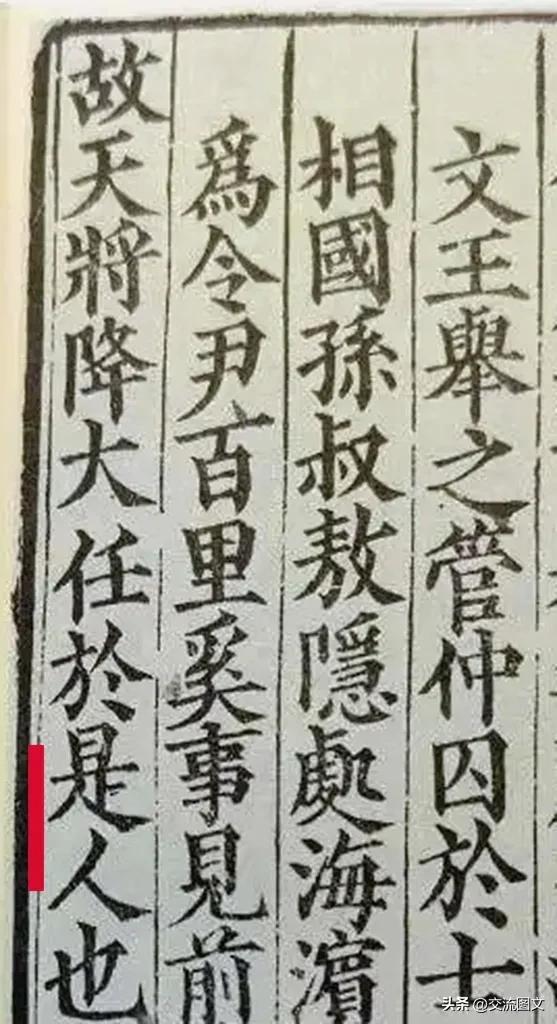 文王舉之管仲囚於士
相國孫叔敖隱處海濵
爲令尹百里奚事見前
故天將降大任於是人也
头条 @交流图文